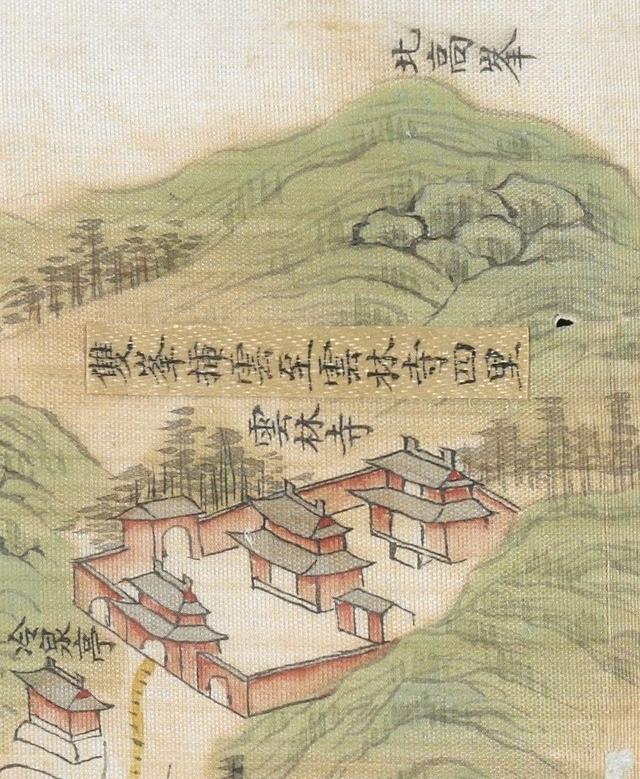 北高峯
雙峯插雲至雲林寺四里
雲林寺
冷泉亭